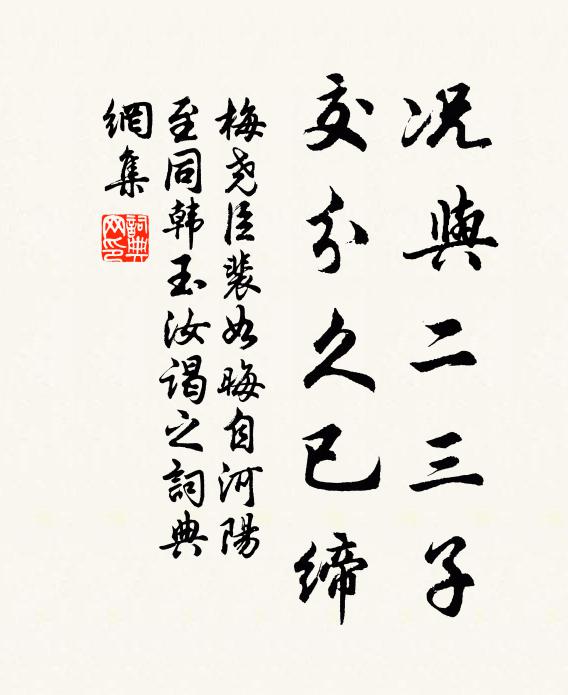 况與二三子
交分久已締
梅尧臣裴如晦自河陽
至同韩玉汝谒之詞典
網集
詞典網印